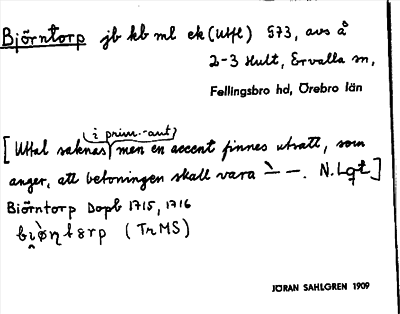 Björntorp jb kb ml ek (utfl) §73, avs å
2-3 Hult, Ervalla sn,
Fellingsbro hd, Örebro län
(i prim.-aut)
[Uttal saknas, men en accent finnes utsatt, som
anger, att betoningen skall vara `— —. N. Lqt]
Biörntorp Dopb 1715, 1716
(TrMS)
JÖRAN SAHLGREN 1909